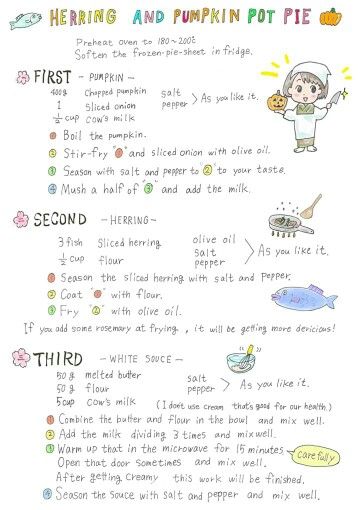 HERRING AND PUMPKIN POT PIE
Preheat oven to 180~200℃
Soften the frozen-pie-sheet in fridge.
FIRST - PUMPKIN -
400g Chopped pumpkin
1 Sliced onion
1/2 cup cow's milk
salt
pepper > As you like it.
① Boil the pumpkin.
② Stir-fry "①" and sliced onion with olive oil.
③ Season with salt and pepper to "②" to your taste.
④ Mush a half of "③" and add the milk.
SECOND - HERRING -
3 fish Sliced herring
1/2 cup flour
olive oil
salt
pepper > As you like it.
① Season the sliced herring with salt and pepper.
② Coat "①" with flour.
③ Fry "②" with olive oil.
If you add some rosemary at frying, it will be getting more dericious!
THIRD - WHITE SOUCE -
50g melted butter
50g flour
5cup cow's milk (I don't use cream that's good for our health)
salt
pepper > As you like it.
① Combine the butter and flour in the bowl and mix well.
② Add the milk dividing 3 times and mix well.
③ Warm up that in the microwave for 15 minutes
carefully
Open that door sometimes and mix well.
After getting creamy this work will be finished.
④ Season the souce with salt and pepper and mix well.